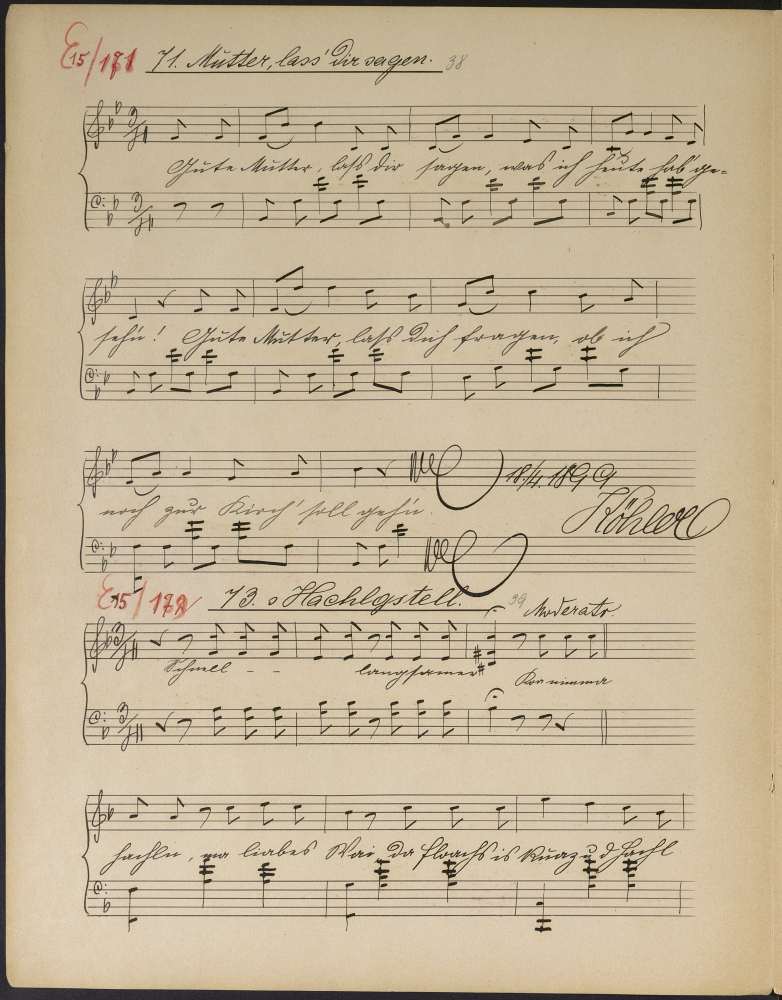 E15/171 71. Mutter, lass' Dir sagen. 38
Gute Mutter, laß dir sagen, was ich heute hab' ge-
seh'n! Gute Mutter, laß dich fragen, ob ich
noch zur Kirch' soll geh'n.
18/4. 1899
Köhler
E15/172 73. s Hachlgstell. 39 Moderato.
Schnell - - langsamer
Kon nimma
hachln, ma liabes Wai, da floachs is kuaz u d hachl